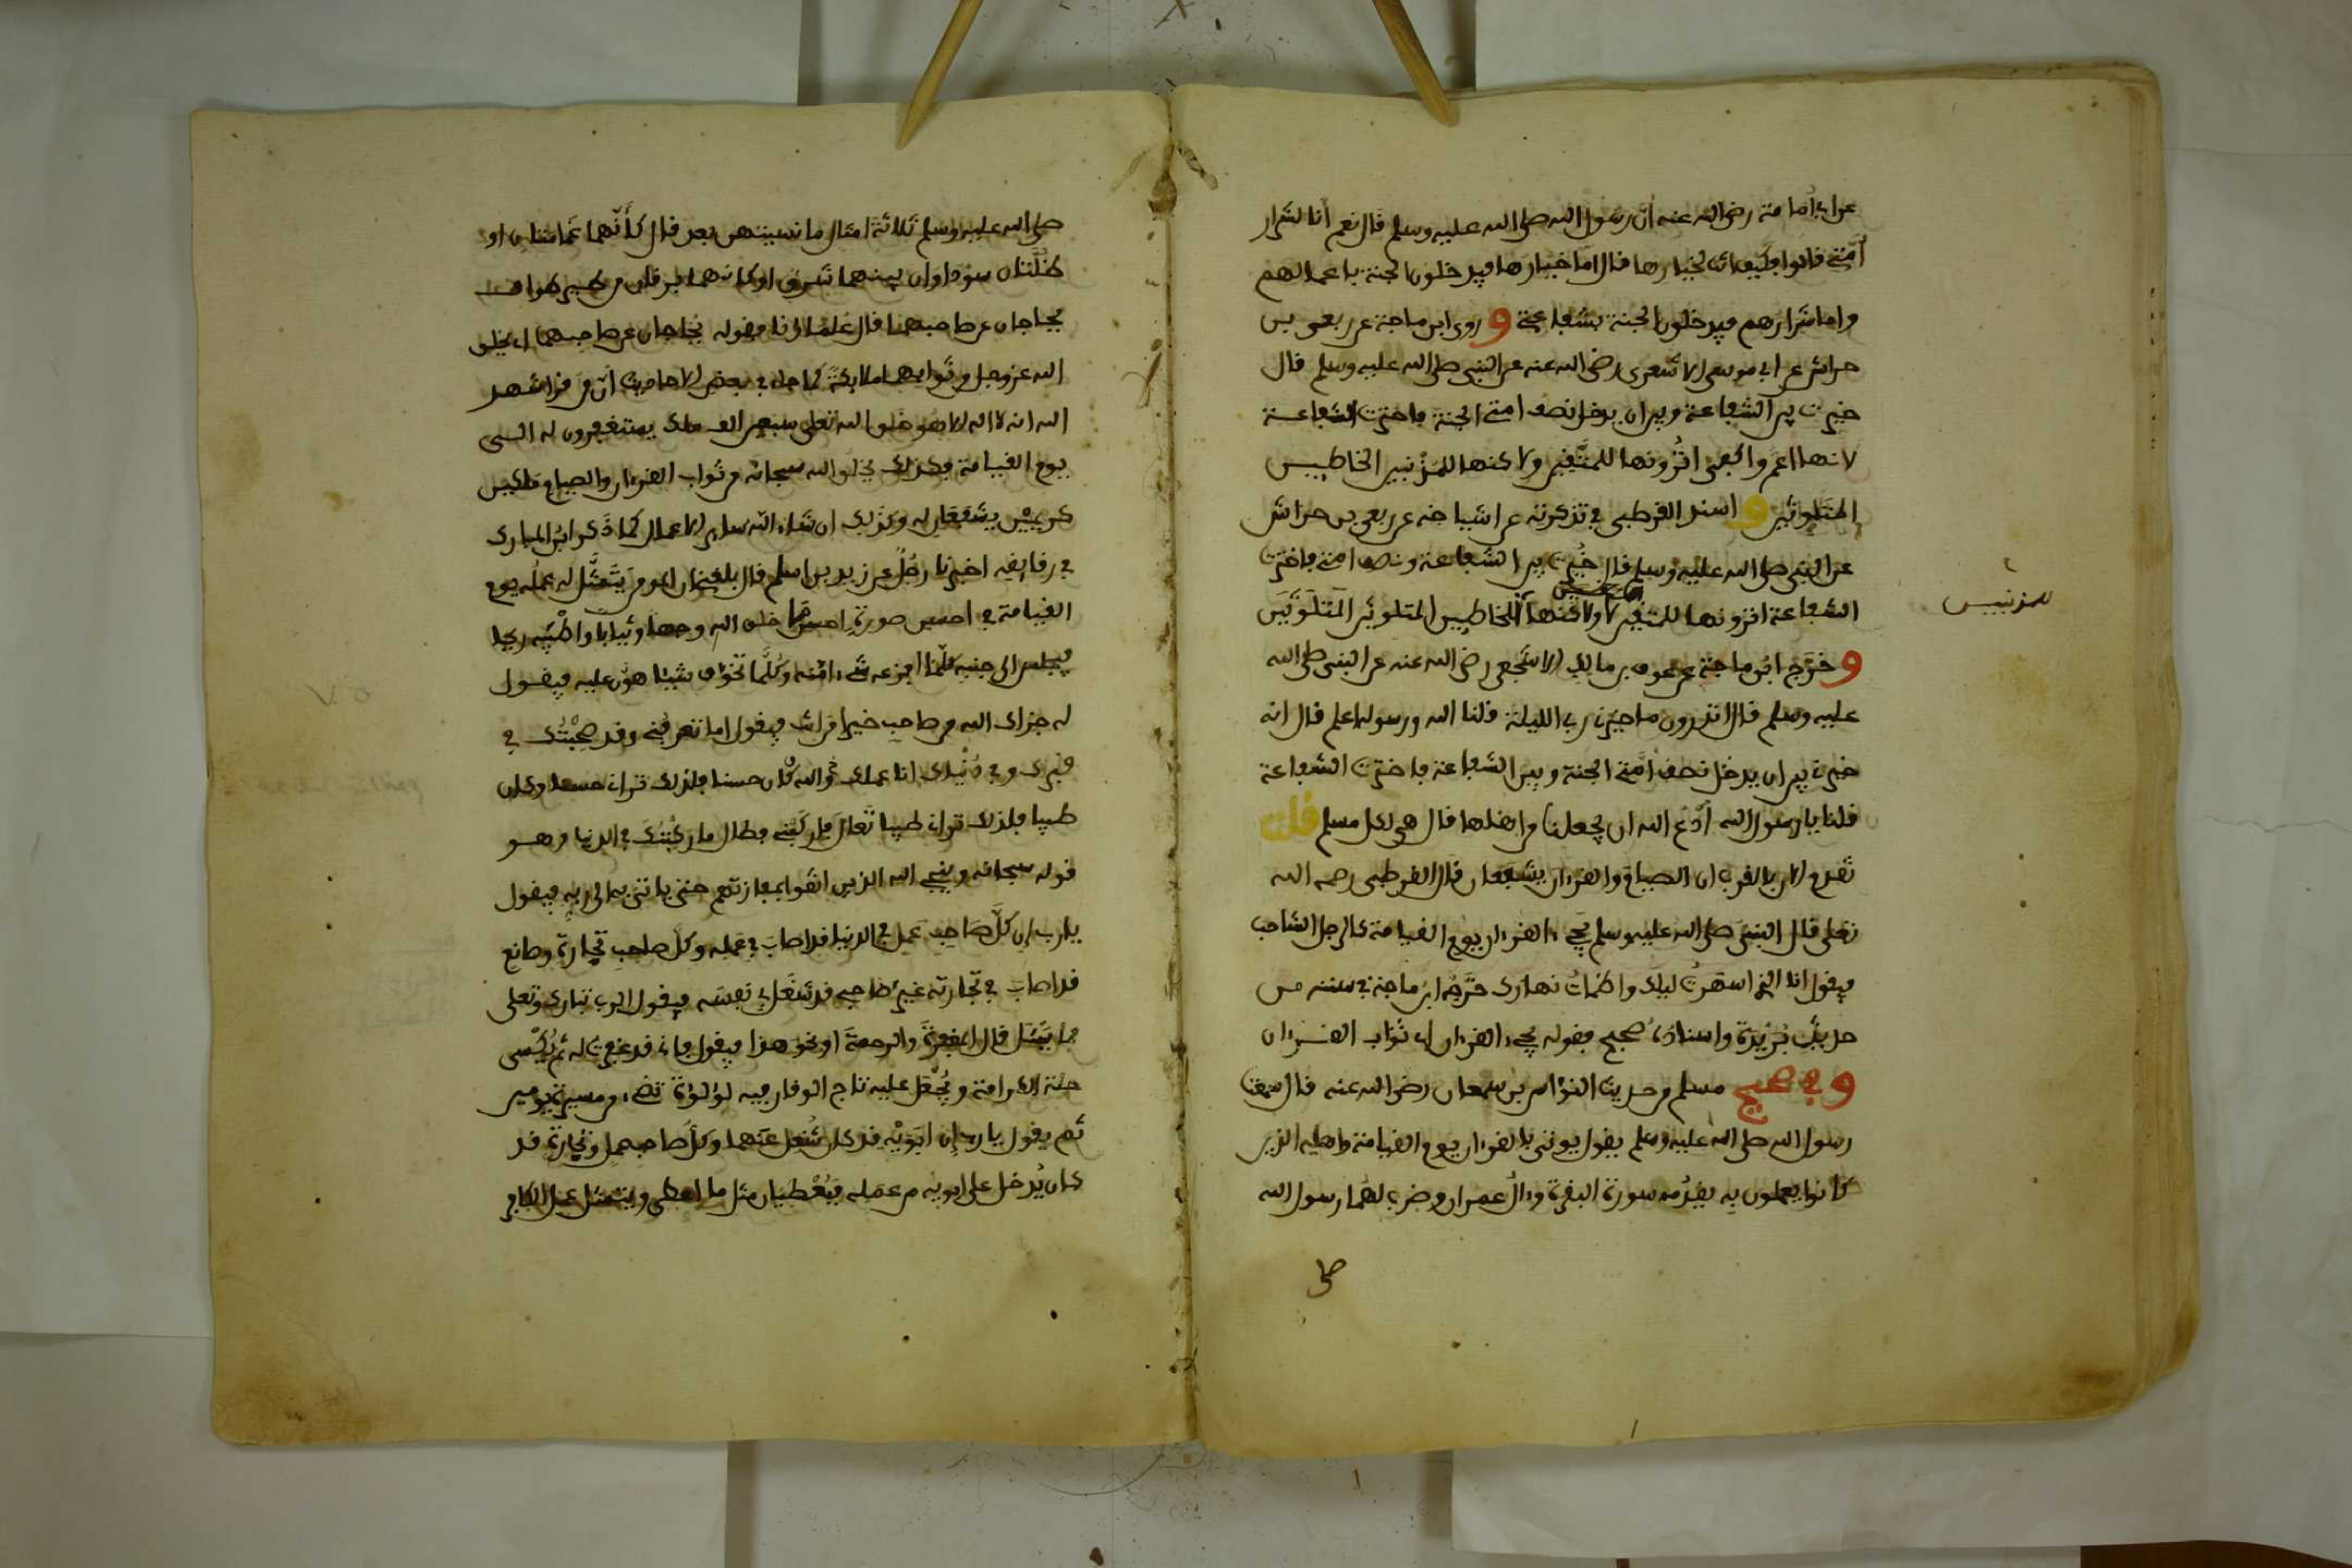 عن ابي امامة رضي الله عنه ان رسول الله صلى الله عليه وسلم قال نعم انا لشرار
أمتي قالوا فكيف انت لخيارها قال اما خيارها فيدخلون الجنة باعمالهم
واما شرارهم فيدخلون الجنة بشفاعتي وروى ابن ماجة عن ربعي بن
حراش عن ابي موسى الاشعري رضي الله عنه عن النبي صلى الله عليه وسلم قال
خيرت بين الشفاعة وبين ان يدخل نصف امتي الجنة فاخترت الشفاعة
لانها اعم واكفى اترونها للمتقين ولاكنها للمذنبين الخاطيين
المتلوثين واسند القرطبي في تذكرته عن اشياخه عن ربعي بن حراش
عن النبي صلى الله عليه وسلم قال خيرت بين الشفاعة ونصف امتي فاخترت
الشفاعة اترونها للمتقين لا ولاكنها للخاطيين المتلوثين المتلوثين
للمذنبين
وخرج ابن ماجة عن عوف بن مالك الاشجعي رضي الله عنه عن النبي صلى الله
عليه وسلم قال اتدرون ما خيرني ربي الليلة قلنا الله ورسوله اعلم قال انه
خيرني بين ان يدخل نصف أمتي الجنة وبين الشفاعة فاخترت الشفاعة
قلنا يا رسول الله أدع الله ان يجعلنا من اهلها قال هي لكل مسلم قلت
تقدم لان بالقرب ان الصيام والقرءان يشفعان قال القرطبي رحمه الله
تعلى قال النبي صلى الله عليه وسلم يجيء القرءان يوم القيامة كالرجل الشاحب
فيقول انا الذي اسهرت ليلك واظمات نهارك خرجه ابن ماجة في سننه من
حديث بريدة واسناده صحيح فقوله يجيء القرءان اي ثواب القرءان
وفي صحيح مسلم من حديث النواس بن سمعان رضي الله عنه قال سمعت
رسول الله صلى الله عليه وسلم يقول يوتى بالقرءان يوم القيامة واهله الذين
كانوا يعملون به يقدمه سورة البقرة وءال عمران وضرب لهما رسول الله
صلى
صلى الله عليه وسلم ثلاثة امثال ما نسيتهن بعد قال كأنهما غمامتان او
ظلتان سوداوان بينهما شرق او كانهما فرقان من طير صواف
يحاجان عن صاحبهما قال علماؤنا فقوله يحاجان عن صاحبهما اي يخلق
الله عز وجل من ثوابهما ملائكة كما جاء في بعض الاحاديث ان من قرا شهد
الله انه لا اله الا هو خلق الله تعلى سبعين الف ملك يستغفرون له الى
يوم القيامة فكذلك يخلق الله سبحانه من ثواب القرءان والصيام ملكين
كريمين يشفعان له وكذلك ان شاء الله ساير الاعمال كما ذكر ابن المبارك
في رقايقه اخبرنا رجل عن زيد بن اسلم قال بلغني ان المومن يتمثل له عمله يوم
القيامة في احسن صورة احسن ما خلق الله وجها وثيابا واطيبه ريحا
فيجلس الى جنبه كلما افزعه شيء امنه وكلما تخوف شيئا هون عليه فيقول
له جزاك الله من صاحب خيرا من انت فيقول اما تعرفني وقد صحبتك في
قبرك وفي دنياك انا عملك كان والله حسنا فلذلك تراني حسنا وكان
طيبا فلذلك تراني طيبا تعال فاركبني فطال ما ركبتك في الدنيا وهو
قوله سبحانه وينجي الله الذين اتقوا بمفازتهم حتى ياتي به الى ربه فيقول
يا رب ان كل صاحب عمل في الدنيا قد اصاب في عمله وكل صاحب تجارة وصانع
قد اصاب في تجارته غير صاحبي قد شغل في نفسه فيقول الرب تبارك وتعلى
فما تسئل قال المغفرة والرحمة او نحو هذا فيقول فاني قد غفرت له ثم يكسى
حلة الكرامة ويجعل عليه تاج الوقار فيه لؤلؤة تضيء من مسيرة يومين
ثم يقول يا رب ان ابويه قد كان شغل عنهما وكل صاحب عمل وتجارة قد
كان يدخل على ابويه من عمله فيعطيان مثل ما اعطي ويتمثل عمل الكافر